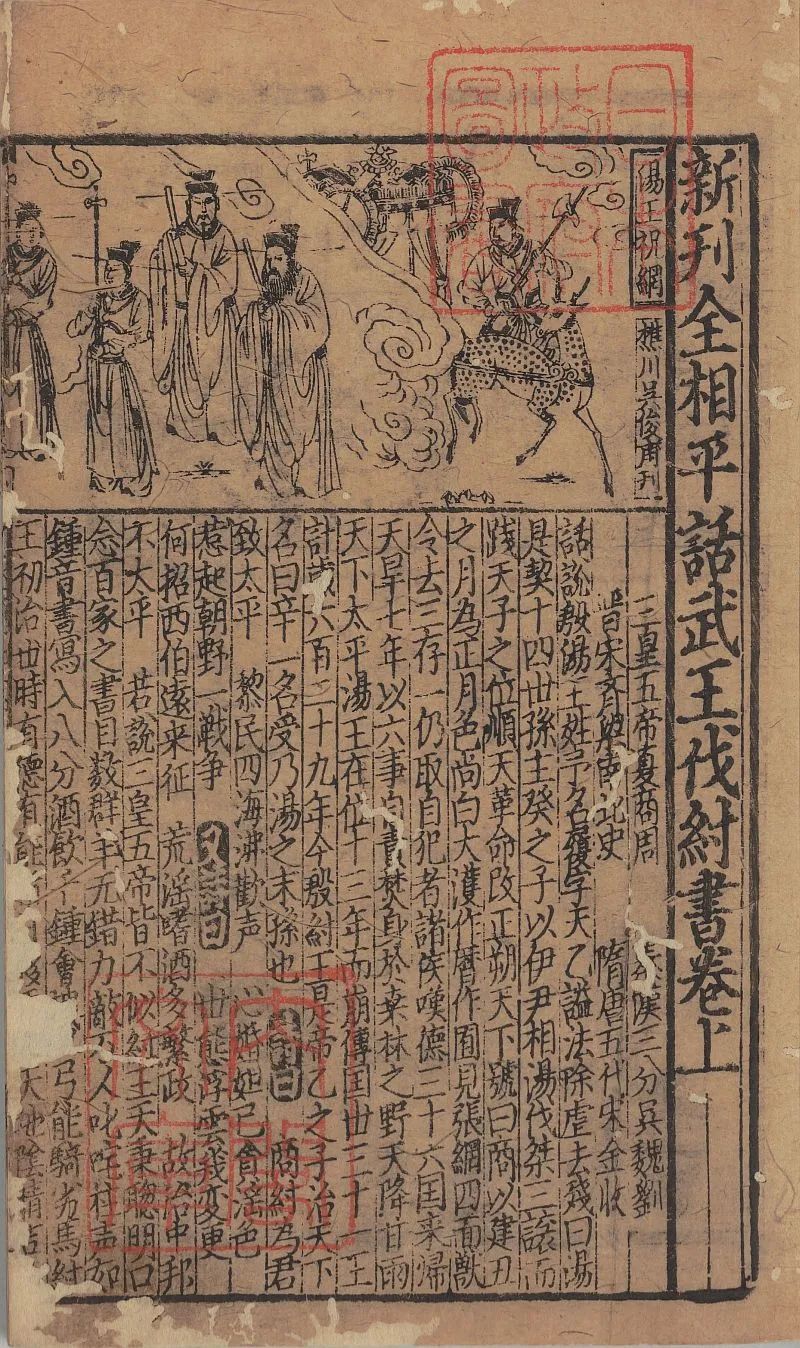 新刊全相平話武王伐紂書卷上
湯王祝網
樵川吳俊甫刊
三皇五帝夏商周　秦漢三分吳魏劉
晉宋齊梁南北史　隋唐五代宋金收
話說殷湯王姓子名履字天乙謚法除虐去殘曰湯
是契十四世孫主癸之子以伊尹相湯伐桀三讓而
踐天子之位順天革命改正朔天下號曰商以建丑
之月為正月色尚白大濩作曆作囿見張網四面獸
令去三存一仍取自犯者諸侯嘆德三十六国来歸
天旱七年以六事自責焚身於桑林之野天降甘雨
天下太平湯王在位十三年而崩傳国世三十一王
計歲六百二十九年今殷紂王是帝乙之子治天下
名曰辛一名受乃湯之末孫也　詩曰　商紂為君
致太平　黎民四海沸歡声　心婚妲己貪淫色
惹起朝野一戰争　又詩曰　世態浮雲幾變更
何招西伯遠来征　荒淫嗜酒多繁政　故治中邦
不太平　若說三皇五帝皆不似紂王天秉聰明口
念百家之書目数群羊无錯力敵万人叱咤柱声如
鍾音書寫入八分酒飲千鍾會　弓能騎劣馬紂
王初治世時有德有能　天地陰晴